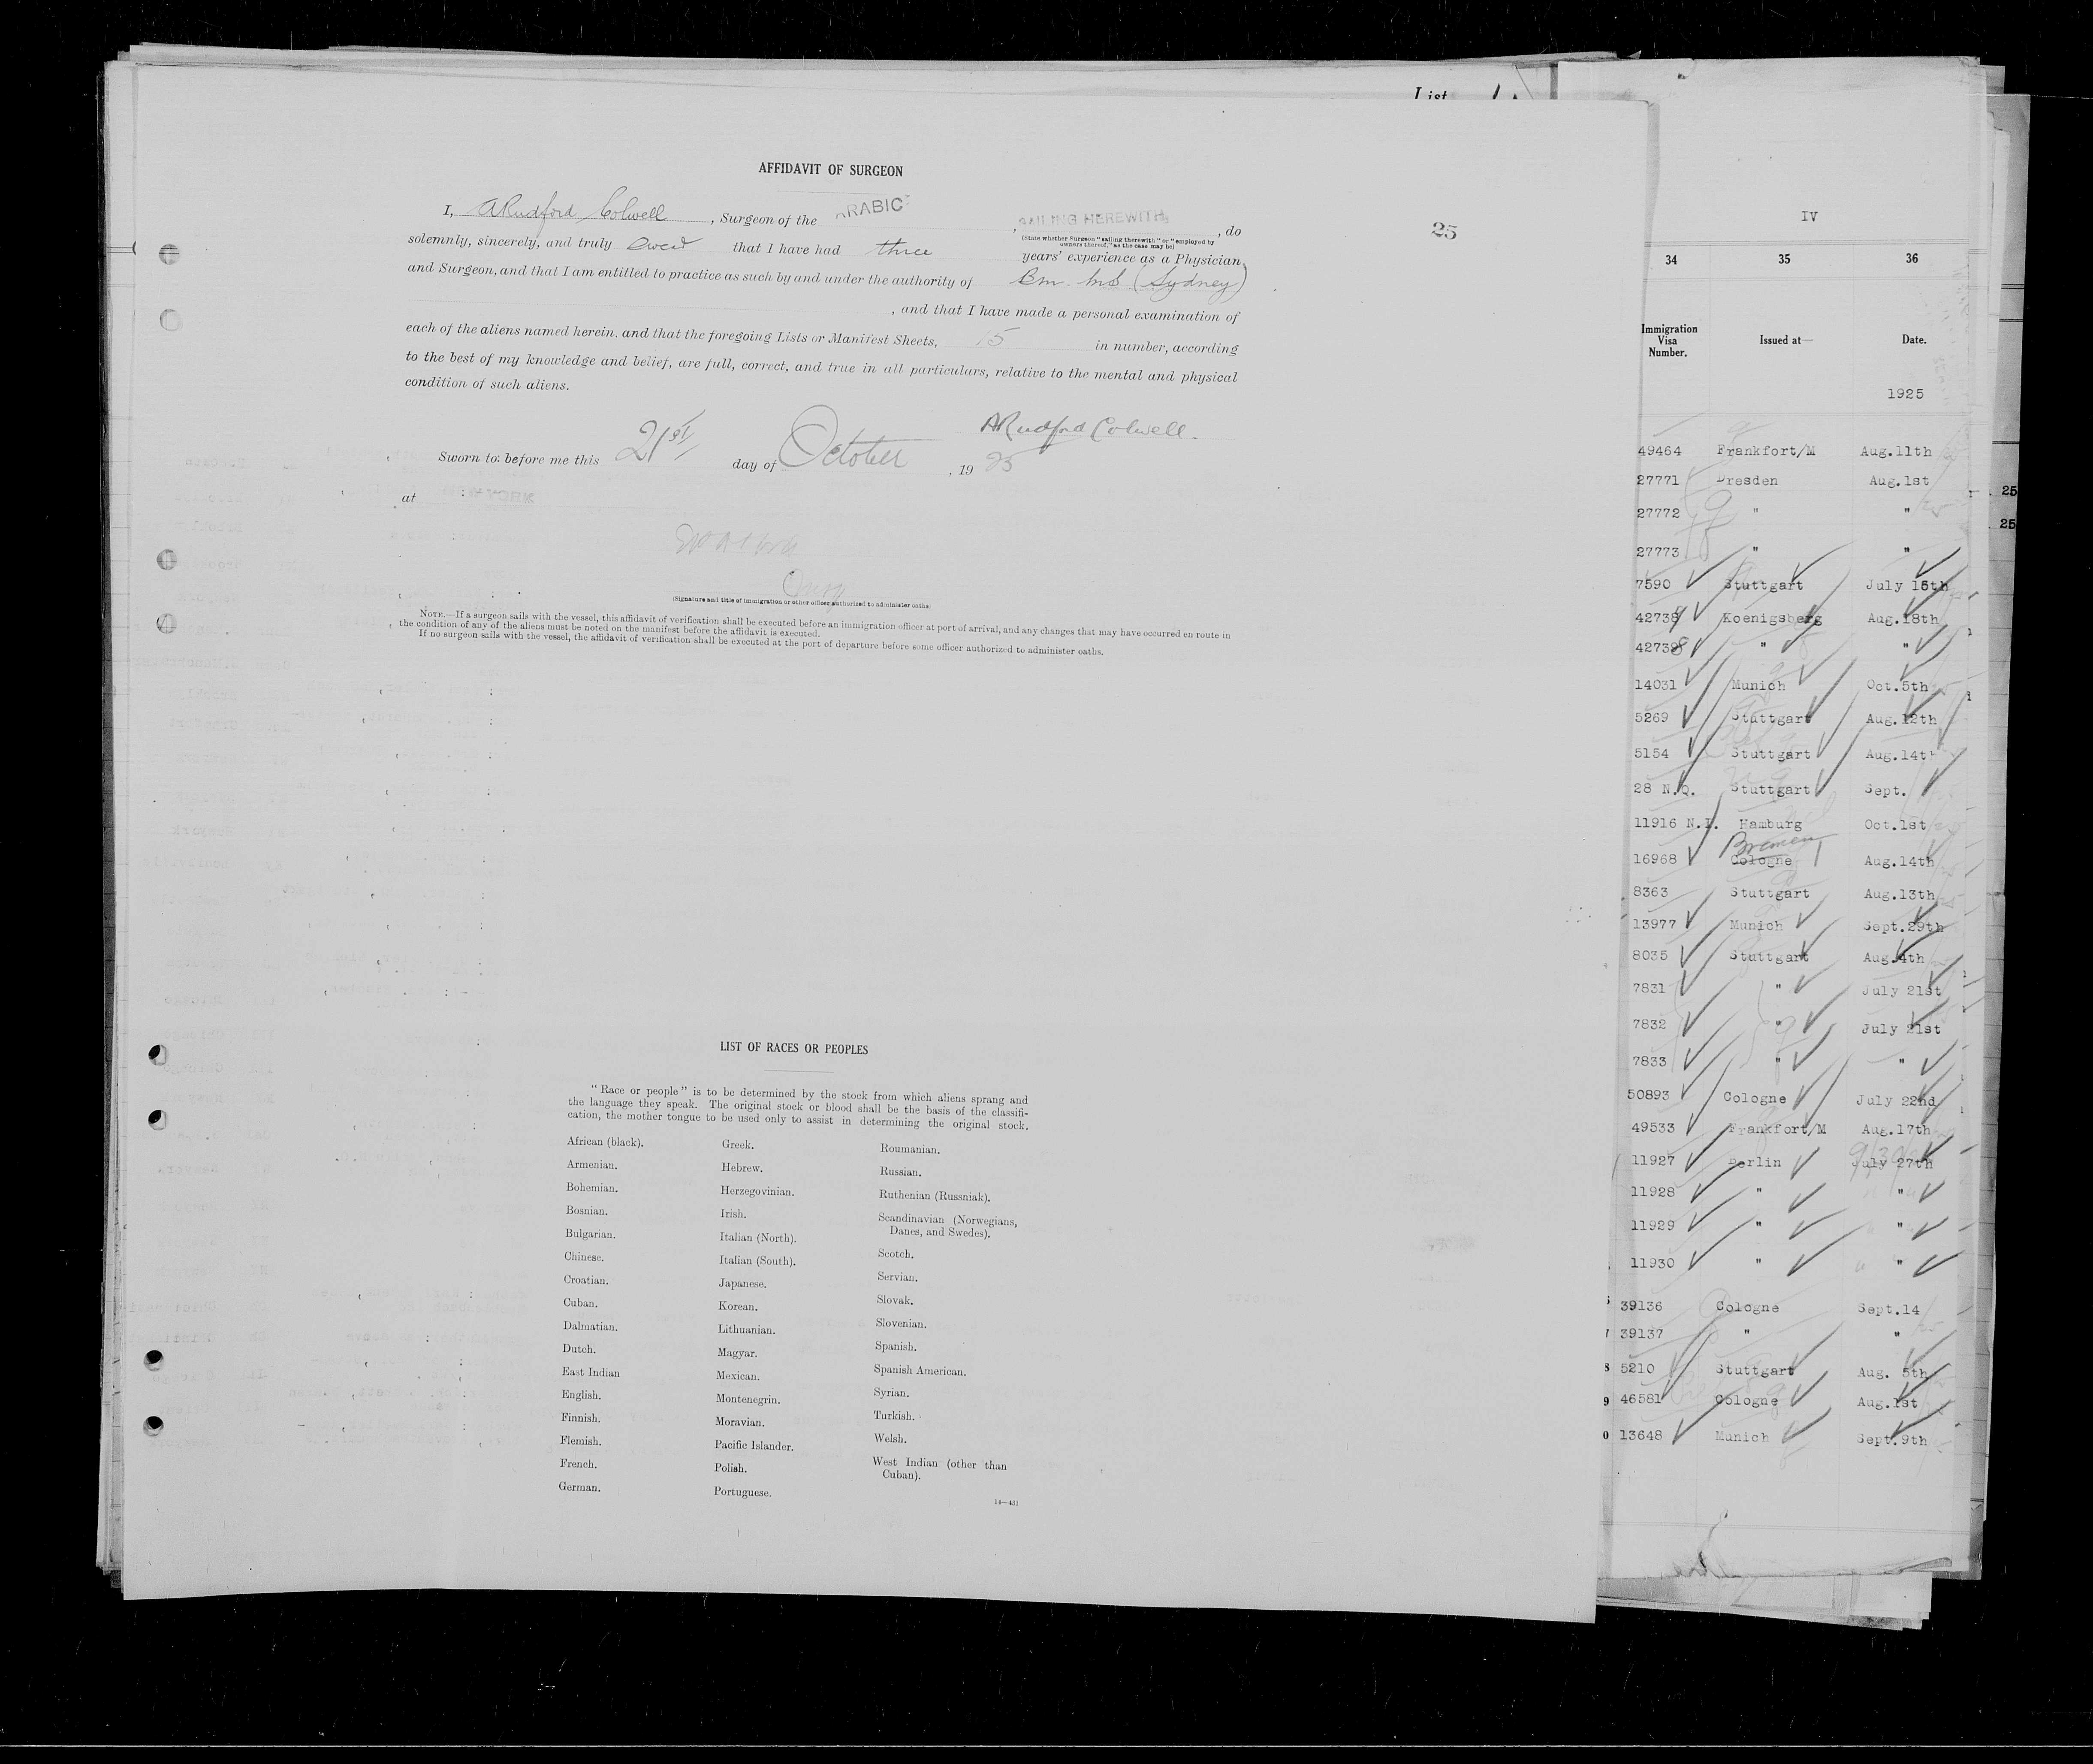 List
AFFIDAVIT OF SURGEON
I, ARudford Colwell, Surgeon of the ARABIC, SAILING HEREWITH, do
(State whether Surgeon "sailing therewith" or "employed by
owners thereof," as the case may be)
solemnly, sincerely, and truly swear that I have had three years' experience as a Physician
and Surgeon, and that I am entitled to practice as such by and under the authority of Bm. MS (Sydney)
, and that I have made a personal examination of
each of the aliens named herein. and that the foregoing Lists or Manifest Sheets, 15 in number, according
to the best of my knowledge and belief, are full, correct, and true in all particulars, relative to the mental and physical
condition of such aliens.
ARudford Colwell.
Sworn to before me this 21st day of October, 1925
at
(Signature and title of immigration or other officer authorized to administer oaths)
NOTE.—If a surgeon sails with the vessel, this affidavit of verification shall be executed before an immigration officer at port of arrival, and any changes that may have occurred en route in
the condition of any of the aliens must be noted on the manifest before the affidavit is executed.
If no surgeon sails with the vessel, the affidavit of verification shall be executed at the port of departure before some officer authorized to administer oaths.
25
LIST OF RACES OR PEOPLES
"Race or people" is to be determined by the stock from which aliens sprang and
the language they speak. The original stock or blood shall be the basis of the classifi-
cation, the mother tongue to be used only to assist in determining the original stock.
African (black).
Armenian.
Bohemian.
Bosnian.
Bulgarian.
Chinese.
Croatian.
Cuban.
Dalmatian.
Dutch.
East Indian
English.
Finnish.
Flemish.
French.
German.
Greek.
Hebrew.
Herzegovinian.
Irish.
Italian (North).
Italian (South).
Japanese.
Korean.
Lithuanian.
Magyar.
Mexican.
Montenegrin.
Moravian.
Pacific Islander.
Polish.
Portuguese.
Roumanian.
Russian.
Ruthenian (Russniak).
Scandinavian (Norwegians,
Danes, and Swedes).
Scotch.
Servian.
Slovak.
Slovenian.
Spanish.
Spanish American.
Syrian.
Turkish.
Welsh.
West Indian (other than
Cuban).
14—431
IV
34 35 36
Immigration
Visa
Number.
Issued at—
Date.
1925
49464 Frankfort/M Aug.11th
27771 Dresden Aug.1st
27772 " "
27773 " "
7590 Stuttgart July 15th
42739 Koenigsberg Aug.18th
42738 " "
14031 Munich Oct.5th
5269 Stuttgart Aug.12th
5154 Stuttgart Aug.14th
28 N.Q. Stuttgart Sept.
11916 N.I. Hamburg Oct.1st
Bremen
16968 Cologne Aug.14th
8363 Stuttgart Aug.13th
13977 Munich Sept.29th
8035 Stuttgart Aug.4th
7831 " July 21st
7832 " July 21st
7833 " "
50893 Cologne July 22nd
49533 Frankfort/M Aug.17th
11927 Berlin July 27th
11928 " "
11929 " "
11930 " "
39136 Cologne Sept.14
39137 " "
5210 Stuttgart Aug. 5th
46581 Cologne Aug.1st
13648 Munich Sept.9th
25
25